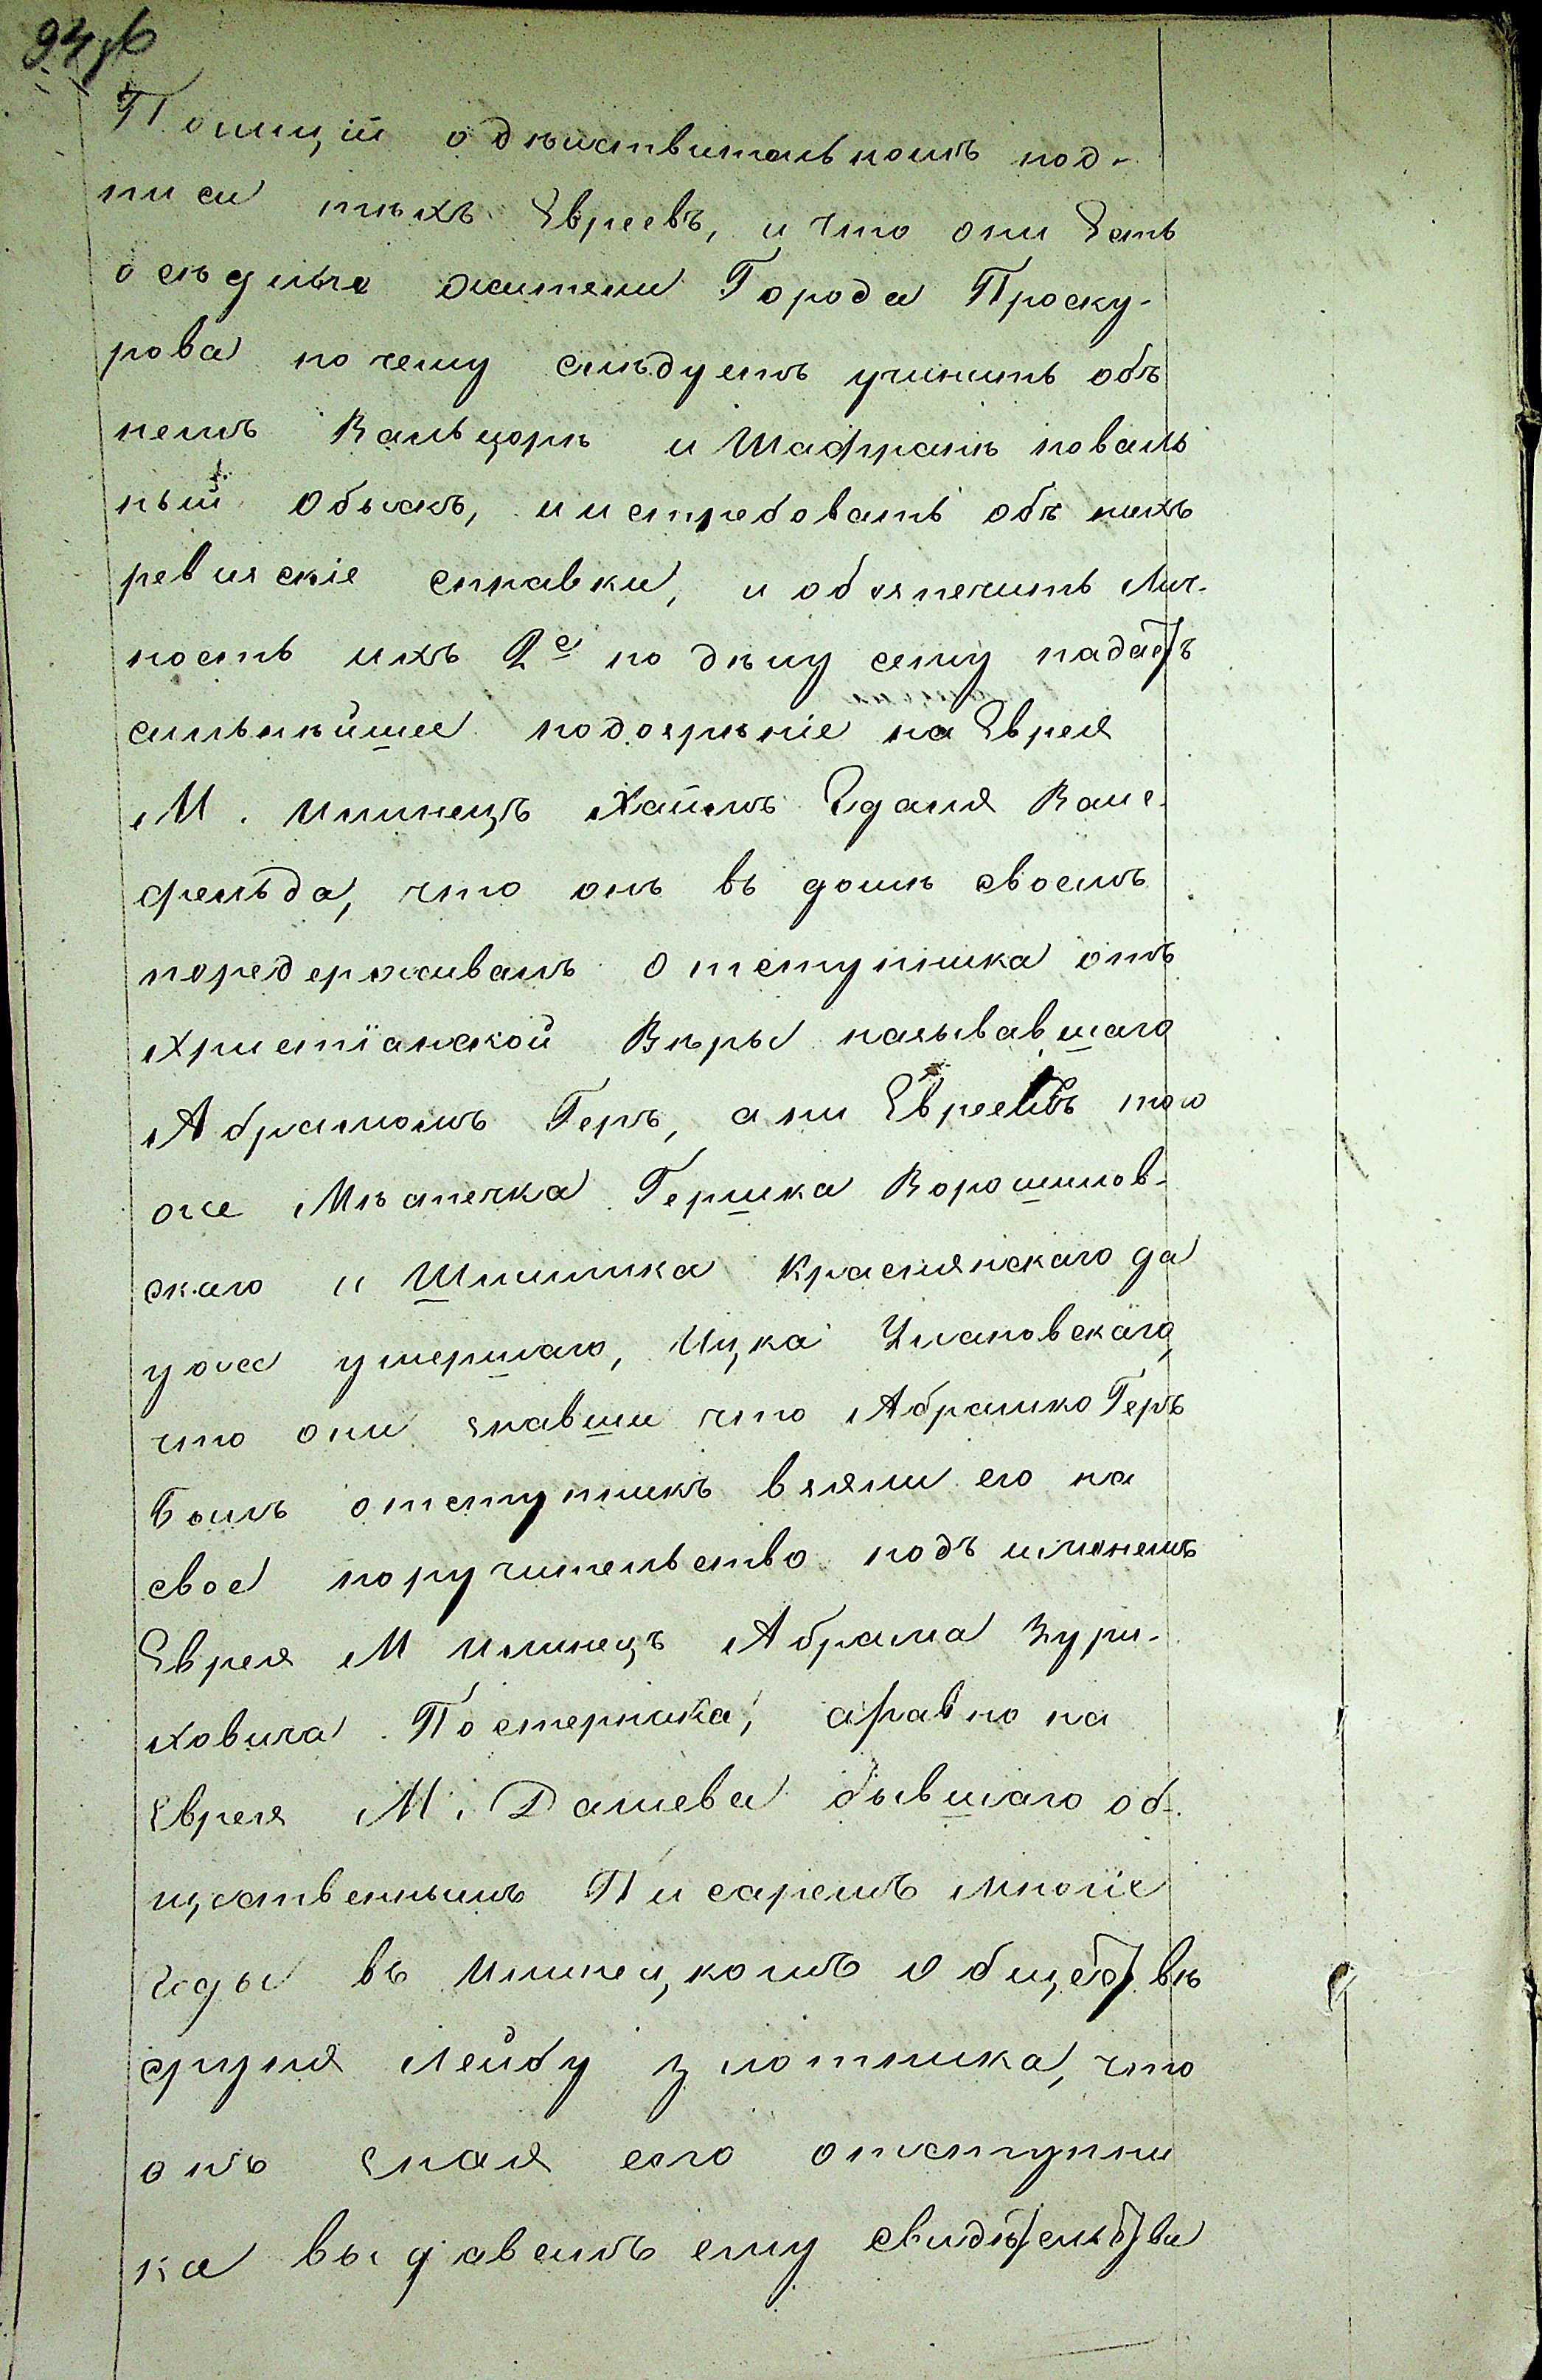 Полиціи о дѣиствительномъ под-
писи тѣхъ Евреевъ, и что они Есть
осѣдлые жители Города Проску-
рова по чему слѣдуетъ учинить объ
немъ Вальцорѣ и Шафранѣ поваль
ный обыскъ, и истребовать объ нихъ
ревизскіе справки, и обезпечить Лич-
ность ихъ 2е по дѣлу сему падаетъ
сильнѣйшее подозрѣніе на Еврея
М. Илинецъ Хаимъ Eдаля Ваис-
фельда, что онъ въ домѣ своемъ
передерживалъ отступника отъ
Христіанской Вѣры называвшаго
Абрамомъ Геръ, а ни Евреевъ того
же Мѣстечка Гершка Ворошилов-
скаго и Шлиомка Краснянскаго да
уже умершаго, Ицка Улановскаго,
что они знавши что Абрашко Геръ
былъ отступникъ взяли его на
свое поручительство подъ именемъ
Еврея М Илинецъ Абрама Зури-
ховича Постерника, а равно на
Еврея М. Дашева бывшаго об-
щественнымъ Писаремъ многіе
годы въ Илинецкомъ Обществѣ
Сруля Лейбу Злотника, что
онъ зная его отступни
ка выдавалъ ему свидѣтельства